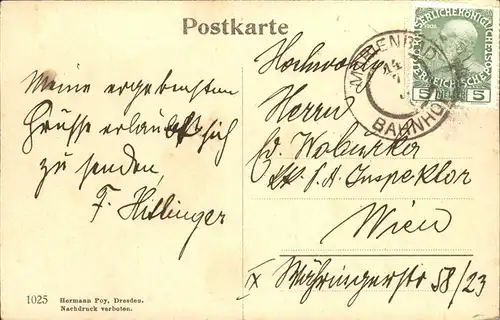 Postkarte
KAISERLICHE KÖNIGLICHE
ÖSTERREICHISCHE POST
5 HELLER 5
MARIENBAD
BAHNHOF
Meine ergebensten
Grüsse erlaubt sich
zu senden,
F. Hitlinger
Hochwohlg.
Herrn
Woburka
Inspektor
Wien
IX Währingerstr 58/23
1025 Hermann Poy, Dresden.
Nachdruck verboten.